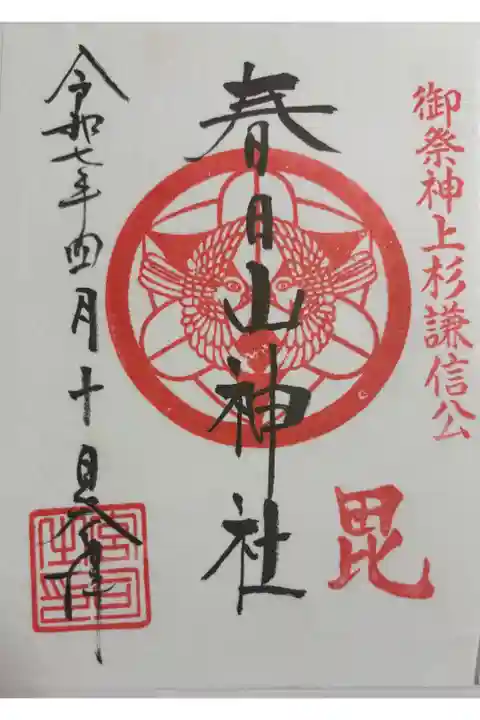 御祭神上杉謙信公
毘
春日山神社
令和七年四月十日奉拝